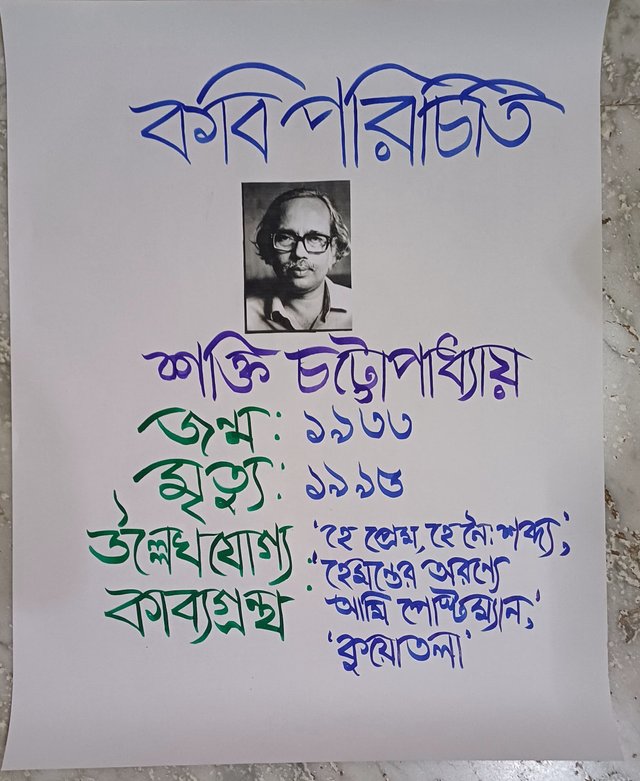 কবি পরিচিতি
শক্তি চট্টোপাধ্যায়
জন্ম : ১৯৩৩
মৃত্যু : ১৯৯৫
উল্লেখযোগ্য কাব্যগ্রন্থ :
'হে প্রেম, হে নৈঃশব্দ্য',
'হেমন্তের অরণ্যে
আমি পোস্টম্যান',
'কুয়োতলা'